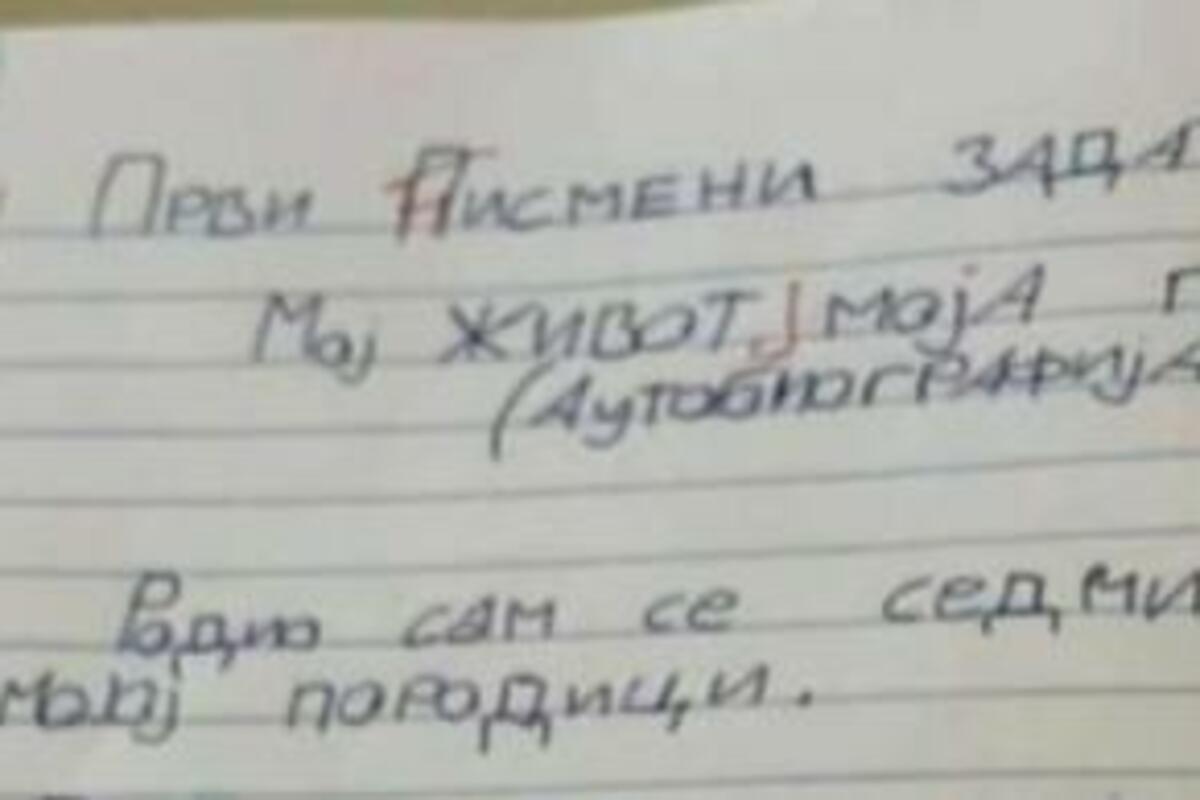 Први Писмени ЗАДА
Мој живот, мојА п
(Аутобиографија
Родио сам се седми
мојој породици.